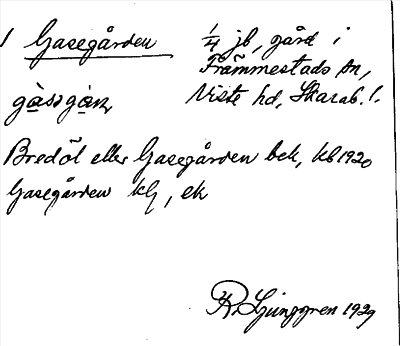 1 Gasegården
1/4 jb, gård i
Främmestads sn,
Viste hd, Skarab. l.
Bredöl eller Gasegården bek, kb 1920
Gasegården klj, ek
R. Ljunggren 1929